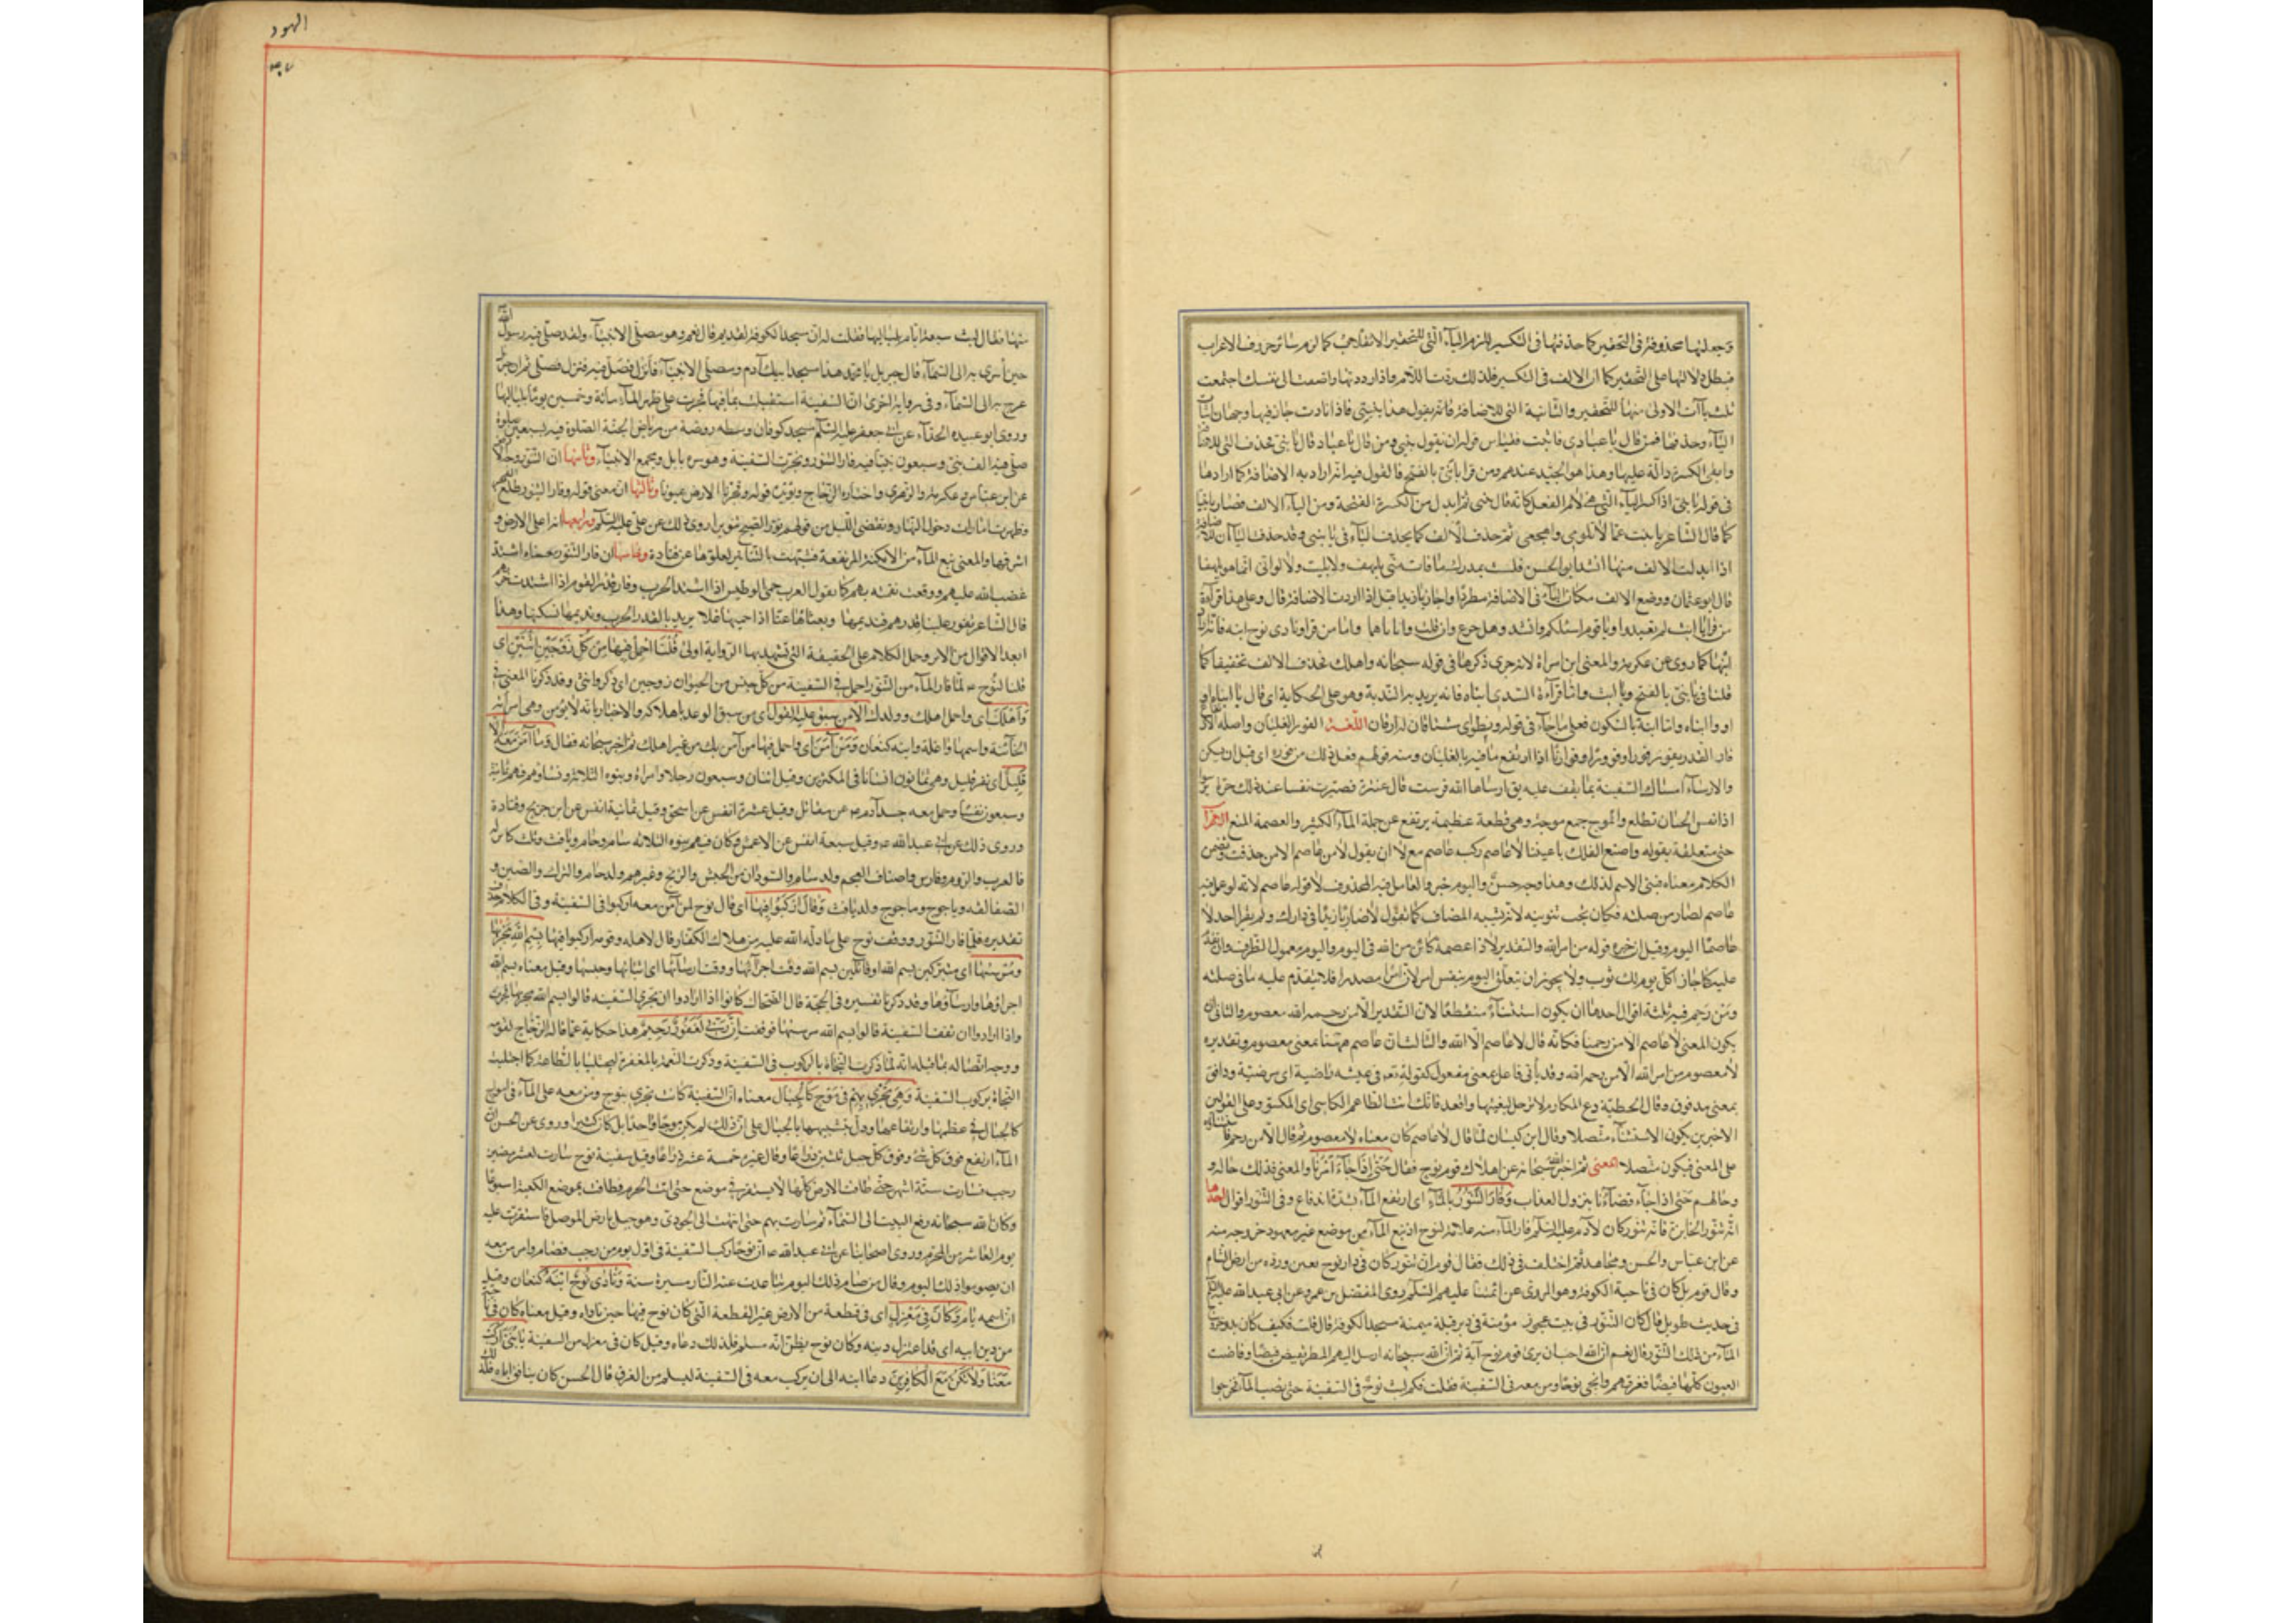 وجعلها محذوفة في التحقير كما حذفها في التكسير للزم الياء التي للتحقير الانقلاب كما لزم سائر حروف الاعراب
فبطل دلالتها على التحقير كما ان الالف في التكسير فلذلك ردت اللام واذا رددتها واضفت الى نفسك اجتمعت
ثلث ياآت الاولى منها للتحقير والثانية التي للاضافة فانه يقول هذا بنيي فاذا نادت جاز فيها وجهان اثبات
الياء وحذفها فمن قال يا عبادي فاثبت فقياس قوله ان يقول بنيي ومن قال يا عباد قال يا بني بحذف التي للاضافة
وابقى الكسرة دالة عليها وهذا هو الجيد عندهم ومن قرا يا بني بالفتح فالقول فيه انه اراد به الاضافة كما ارادها
في قوله يا بني اذا كسر الياء التي هي لام الفعل كانه قال بنيي ثم ابدل من الكسرة الفتحة ومن الياء الالف فصار يا بنيا
كما قال الشاعر يا بنت عما لا تلومي واهجعي ثم حذف الالف كما يحذف الياء في يا بنيي وقد حذف الياآن للاضافة
اذا ابدلت الالف منها انشد ابو الحسن فلست بمدرك ما فات مني بلهف ولا بليت ولا لو اني انما هو بلهفا
قال ابو عثمان ووضع الالف مكان الياء في الاضافة مطردا واجاز يا زيدا قبل اذا اردت الاضافة قال وعلى هذا قراءة
من قرا يا ابت لم تعبد ويا قوم اسئلكم وانشد وهل جزع وان قلت وابأباهما واما من قرا ونادى نوح ابنه فانه اراد
ابنها كما روى عن عكرمة والمعنى ابن امراة لانه جرى ذكرها في قوله سبحانه واهلك فحذف الالف تخفيفا كما
قلنا في يا بني بالفتح ويا ابت واما قراءة السدي ابناه فانه يريد به الندبة وهو على الحكاية اى قال يا ابناه او
او وا ابناه واما ابنه بالسكون فعلى ما جاء في قوله ومطواى مشتاقان له ارقان اللغة الفور الغليان واصله
فار القدر يفور فورا وفؤورا وفورانا اذا ارتفع ما فيه بالغليان ومنه قولهم فعل ذلك من فوره اى قبل ان يسكن
والارساء امساك السفينة بما يقف عليه يق ارساها الله فرست قال عنترة فصبرت نفسا عند ذلك حرة ترسو
اذا نفس الجبان تطلع والموج جمع موجة وهي قطعة عظيمة يرتفع عن جملة الماء الكثير والعصمة المنع الاعراب
حتى متعلقة بقوله واصنع الفلك باعيننا لا عاصم ركب عاصم مع لا ان يقول لا من عاصم الا من حذفت وتضمن
الكلام معناه فبنى الاسم لذلك وهذا وجه حسن واليوم خبر والعامل فيه المحذوف لا قوله عاصم لانه لو عمل فيه
عاصم لصار من صلته فكان يجب تنوينه لانه يشبه المضاف كما تقول لا ضاربا زيدا في دارك ولم يقرا احد لا
عاصما اليوم وقيل خبره قوله من امر الله والتقدير لا ذا عصمة كائن من الله في اليوم واليوم معمول الظرف وان تقدم
عليه كما جاز اكل يوم لك ثوب ولا يجوز ان يتعلق اليوم بنفس امر لان امر مصدر فلا يتقدم عليه ما في صلته
ومن رحم فيه ثلثة اقوال احدها ان يكون استثناء منقطعا لان التقدير الا من رحمه الله معصوم والثاني ان
يكون المعنى لا عاصم الا من رحمنا فكانه قال لا عاصم الا الله والثالث ان عاصم ههنا بمعنى معصوم وتقديره
لا معصوم من امر الله الا من رحمه الله وقد يأتي فاعل بمعنى مفعول كقوله تع في عيشة راضية اى مرضية ودافق
بمعنى مدفوق وقال الحطيئة دع المكارم لا ترحل لبغيتها واقعد فانك انت الطاعم الكاسي اى المكسو وعلى القولين
الاخيرين يكون الاستثناء متصلا وقال ابن كيسان لما قال لا عاصم كان معناه لا معصوم ثم قال الا من رحم
على المعنى فيكون متصلا المعنى ثم اخبر الله سبحانه عن اهلاك قوم نوح فقال حتى اذا جاء امرنا والمعنى فذلك حاله و
وحالهم حتى اذا جاء قضاءنا بنزول العذاب وفار التنور بالماء اى ارتفع الماء بشدة اندفاع وفي التنور اقوال احدها
انه تنور الخابزة فانه تنور كان لآدم عليه السلم فار الماء منه علامة لنوح اذ نبع الماء من موضع غير معهود خروجه منه
عن ابن عباس والحسن ومجاهد ثم اختلف في ذلك فقال قوم ان تنور كان في دار نوح بعين ورده من ارض الشام
وقال قوم بل كان في ناحية الكوفة وهو المروي عن ائمتنا عليهم السلم روى المفضل بن عمر عن ابي عبد الله عليه السلم
في حديث طويل قال كان التنور في بيت عجوز مؤمنة في دبر قبلة ميمنة مسجد الكوفة قال قلت فكيف كان بدو خروج
الماء من ذلك التنور قال نعم ان الله احب ان يرى قوم نوح آية ثم ان الله سبحانه ارسل اليهم المطر يفيض فيضا وفاضت
العيون كلها فيضا فغرقهم وانجى نوحا ومن معه في السفينة فقلت فكم لبث نوح في السفينة حتى نضب الماء فخرجوا
الهود
منها فقال لبث سبعة ايام بلياليها فقلت له ان مسجد الكوفة لقديم قال نعم وهو مصلى الانبياء ولقد صلى فيه رسول الله
حين اسرى به الى السماء قال جبريل يا محمد هذا مسجد ابيك آدم ومصلى الانبياء فانزل فصل فيه فنزل فصلى ثم ان جبريل
عرج به الى السماء وفي رواية اخرى ان السفينة استقبلت بما فيها فجرت على ظهر الماء مائة وخمسين يوما بلياليها
وروى ابو عبيدة الحذاء عن ابي جعفر عليه السلم مسجد كوفان وسطه روضة من رياض الجنة الصلوة فيه بسبعين صلوة
صلى فيه الف نبي وسبعون نبيا فيه فار التنور ونجرت السفينة وهو سرة بابل ومجمع الانبياء وثانيها ان التنور وجه الارض
عن ابن عباس وعكرمة والزهري واختاره الزجاج ويؤيده قوله وفجرنا الارض عيونا وثالثها ان معنى قوله وفار التنور طلع الفجر
وظهرت امارات دخول النهار وتقضى الليل من قولهم نور الصبح تنويرا روى ذلك عن علي عليه السلم ورابعها انه اعلى الارض و
اشرفها والمعنى نبع الماء من الامكنة المرتفعة فشبهت بالتنانير لعلوها عن قتادة وخامسها ان فار التنور معناه اشتد
غضب الله عليهم ووقعت نقمته بهم كما يقول العرب حمى الوطيس اذا اشتد الحرب وفار قدر القوم اذا اشتدت حربهم
قال الشاعر تفور علينا قدرهم فنديمها ونفثاها عنا اذا حميها غلا يريد بالقدر الحرب ونديمها نسكنها وهذا
ابعد الاقوال من الاثر وحمل الكلام على الحقيقة التي تشهد بها الرواية اولى قلنا احمل فيها من كل زوجين اثنين اى
قلنا لنوح ع لما فار الماء من التنور احمل في السفينة من كل جنس من الحيوان زوجين اى ذكر وانثى وقد ذكرنا المعنى في
واهلك اى واحمل اهلك وولدك الا من سبق عليه القول اى من سبق الوعد باهلاكه والاخبار بانه لا يؤمن وهي امراته
الخائنة واسمها واغلة وابنه كنعان ومن آمن اى واحمل فيها من آمن بك من غير اهلك ثم اخبر سبحانه فقال وما آمن معه الا
قليل اى نفر قليل وهم ثمانون انسانا في المكثرين وقيل اثنان وسبعون رجلا وامراة وبنوه الثلاثة ونساؤهم فهم ثمانية
وسبعون نفسا وحمل معه جسد آدم ع عن مقاتل وقيل عشرة انفس عن اسحق وقيل ثمانية انفس عن ابن جريج وقتادة
وروى ذلك عن ابي عبد الله ع وقيل سبعة انفس عن الاعمش وكان فيهم بنوه الثلاثة سام وحام ويافث وثلث كنائن له
فالعرب والروم وفارس واصناف العجم ولد سام والسودان من الحبش والزنج وغيرهم ولد حام والترك والصين و
الصقالبة وياجوج وماجوج ولد يافث وقال اركبوا فيها اى قال نوح لمن آمن معه اركبوا في السفينة وفي الكلام حذف
تقديره فلما فار التنور ووقف نوح على ما دله الله عليه من هلاك الكفار قال لاهله وقومه اركبوا فيها بسم الله مجريها
ومرسيها اى متبركين بسم الله او قائلين بسم الله وقت اجرائها ووقت ارسائها اى اثباتها وحبسها وقيل معناه بسم الله
اجراؤها وارساؤها وقد ذكرنا تفسيره في الحجة قال الضحاك كانوا اذا ارادوا ان تجري السفينة قالوا بسم الله مجريها فجرت
واذا ارادوا ان تقف السفينة قالوا بسم الله مرسيها فوقفت ان ربي لغفور رحيم هذا حكاية عما قاله نوح لقومه
ووجه اتصاله بما قبله انه لما ذكرت النجاة بالركوب في السفينة وذكرت النعمة بالمغفرة ليجتلبا بالطاعة كما اجتلبت
النجاة بركوب السفينة وهي تجري بهم في موج كالجبال معناه ان السفينة كانت تجري بنوح ومن معه على الماء في امواج
كالجبال في عظمها وارتفاعها ودل بتشبيهها بالجبال على ان ذلك لم يكن موجا واحدا بل كان كثيرا وروى عن الحسن ان
الماء ارتفع فوق كل شئ وفوق كل جبل ثلثين ذراعا وقال غيره خمسة عشر ذراعا وقيل سفينة نوح سارت لعشر مضين
رجب فسارت ستة اشهر حتى طافت الارض كلها لا يستقر في موضع حتى اتت الحرم فطافت بموضع الكعبة اسبوعا
وكان الله سبحانه رفع البيت الى السماء ثم سارت بهم حتى انتهت الى الجودي وهو جبل بارض الموصل فاستقرت عليه
يوم العاشر من المحرم وروى اصحابنا عن ابي عبد الله ع ان نوحا ركب السفينة في اول يوم من رجب فصام وامر من معه
ان يصوموا ذلك اليوم وقال من صام ذلك اليوم تباعدت عنه النار مسيرة سنة ونادى نوح ابنه كنعان وقيل
ان اسمه يام وكان في معزل اى في قطعة من الارض غير القطعة التي كان نوح فيها حين ناداه وقيل معناه كان في ناحية
من دين ابيه اى قد اعتزل دينه وكان نوح يظن انه مسلم فلذلك دعاه وقيل كان في معزل من السفينة يا بني اركب
معنا ولا تكن مع الكافرين دعا ابنه الى ان يركب معه في السفينة ليسلم من الغرق قال الحسن كان ينافق اباه فلذلك